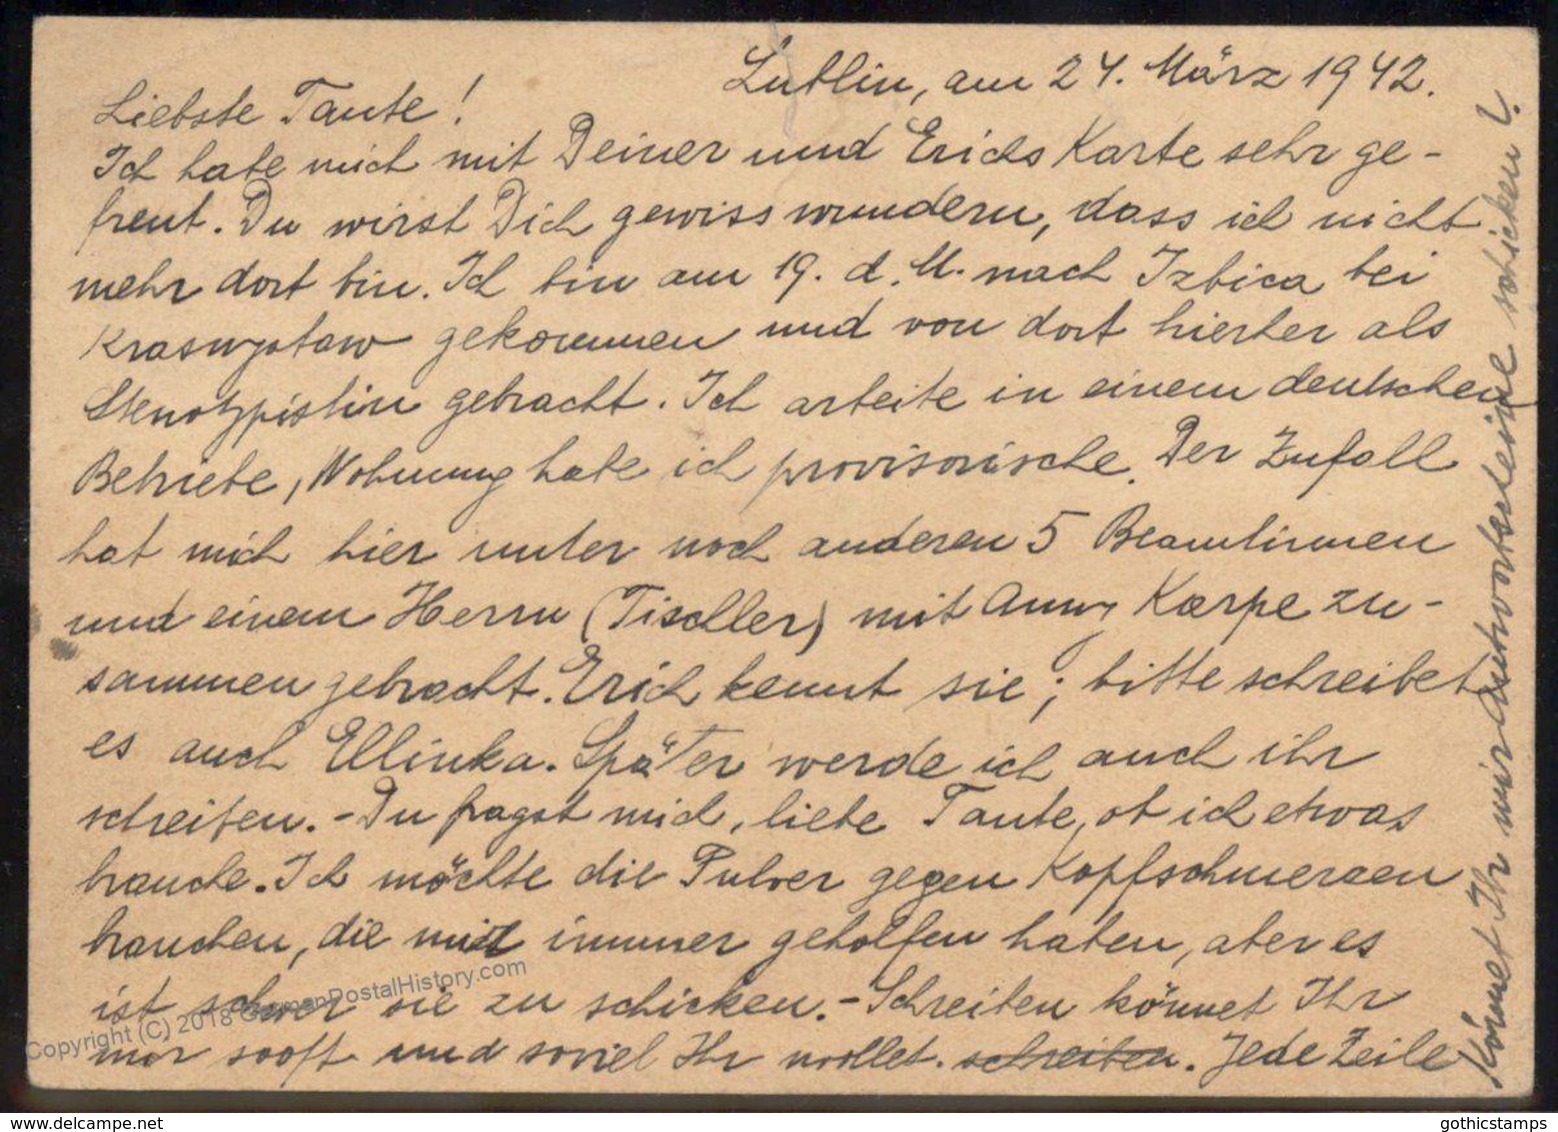 Lublin, am 24. März 1942.
Liebste Tante!
Ich habe mich mit Deiner und Erichs Karte sehr ge-
freut. Du wirst Dich gewiss wundern, dass ich nicht
mehr dort bin. Ich bin am 19. d. M. nach Izbica bei
Krasnystaw gekommen und von dort hierher als
Stenotypistin gebracht. Ich arbeite in einem deutschen
Betriebe, Wohnung habe ich provisorische. Der Zufall
hat mich hier unter noch anderen 5 Beamtinnen
und einem Herrn (Tischler) mit Anny Karpe zu-
sammen gebracht. Erich kennt sie; bitte schreibet
es auch Ellinka. Später werde ich auch ihr
schreiben. - Du fragst mich, liebe Tante, ob ich etwas
brauche. Ich möchte die Pulver gegen Kopfschmerzen
brauchen, die mir immer geholfen haben, aber es
ist schwer sie zu schicken. - Schreiben könnet Ihr
mir sooft und soviel Ihr wollet schreiben. Jede Zeile
Könnet Ihr mir Antwortscheine schicken?
Copyright (C) 2018 GermanPostalHistory.com
www.delcampe.net
gothicstamps